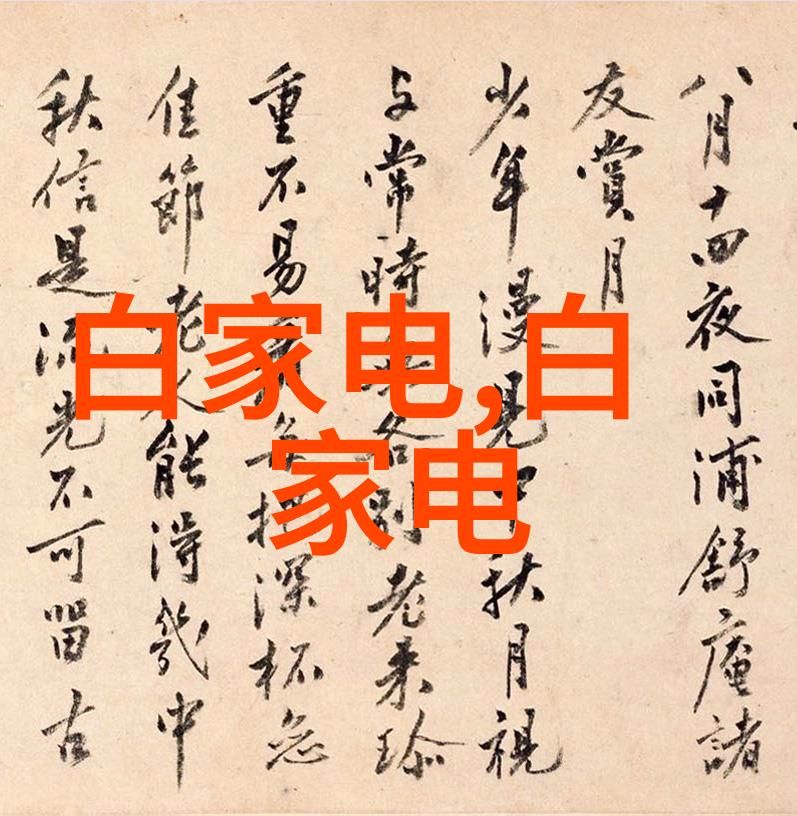 八月十四夜同浦舒庵諸
友賞月
少年漫見中秋月視
与常時各別老来珍
重不易把深杯念
佳節老人能得幾中
秋信是流光不可留古
白家电,白
家电